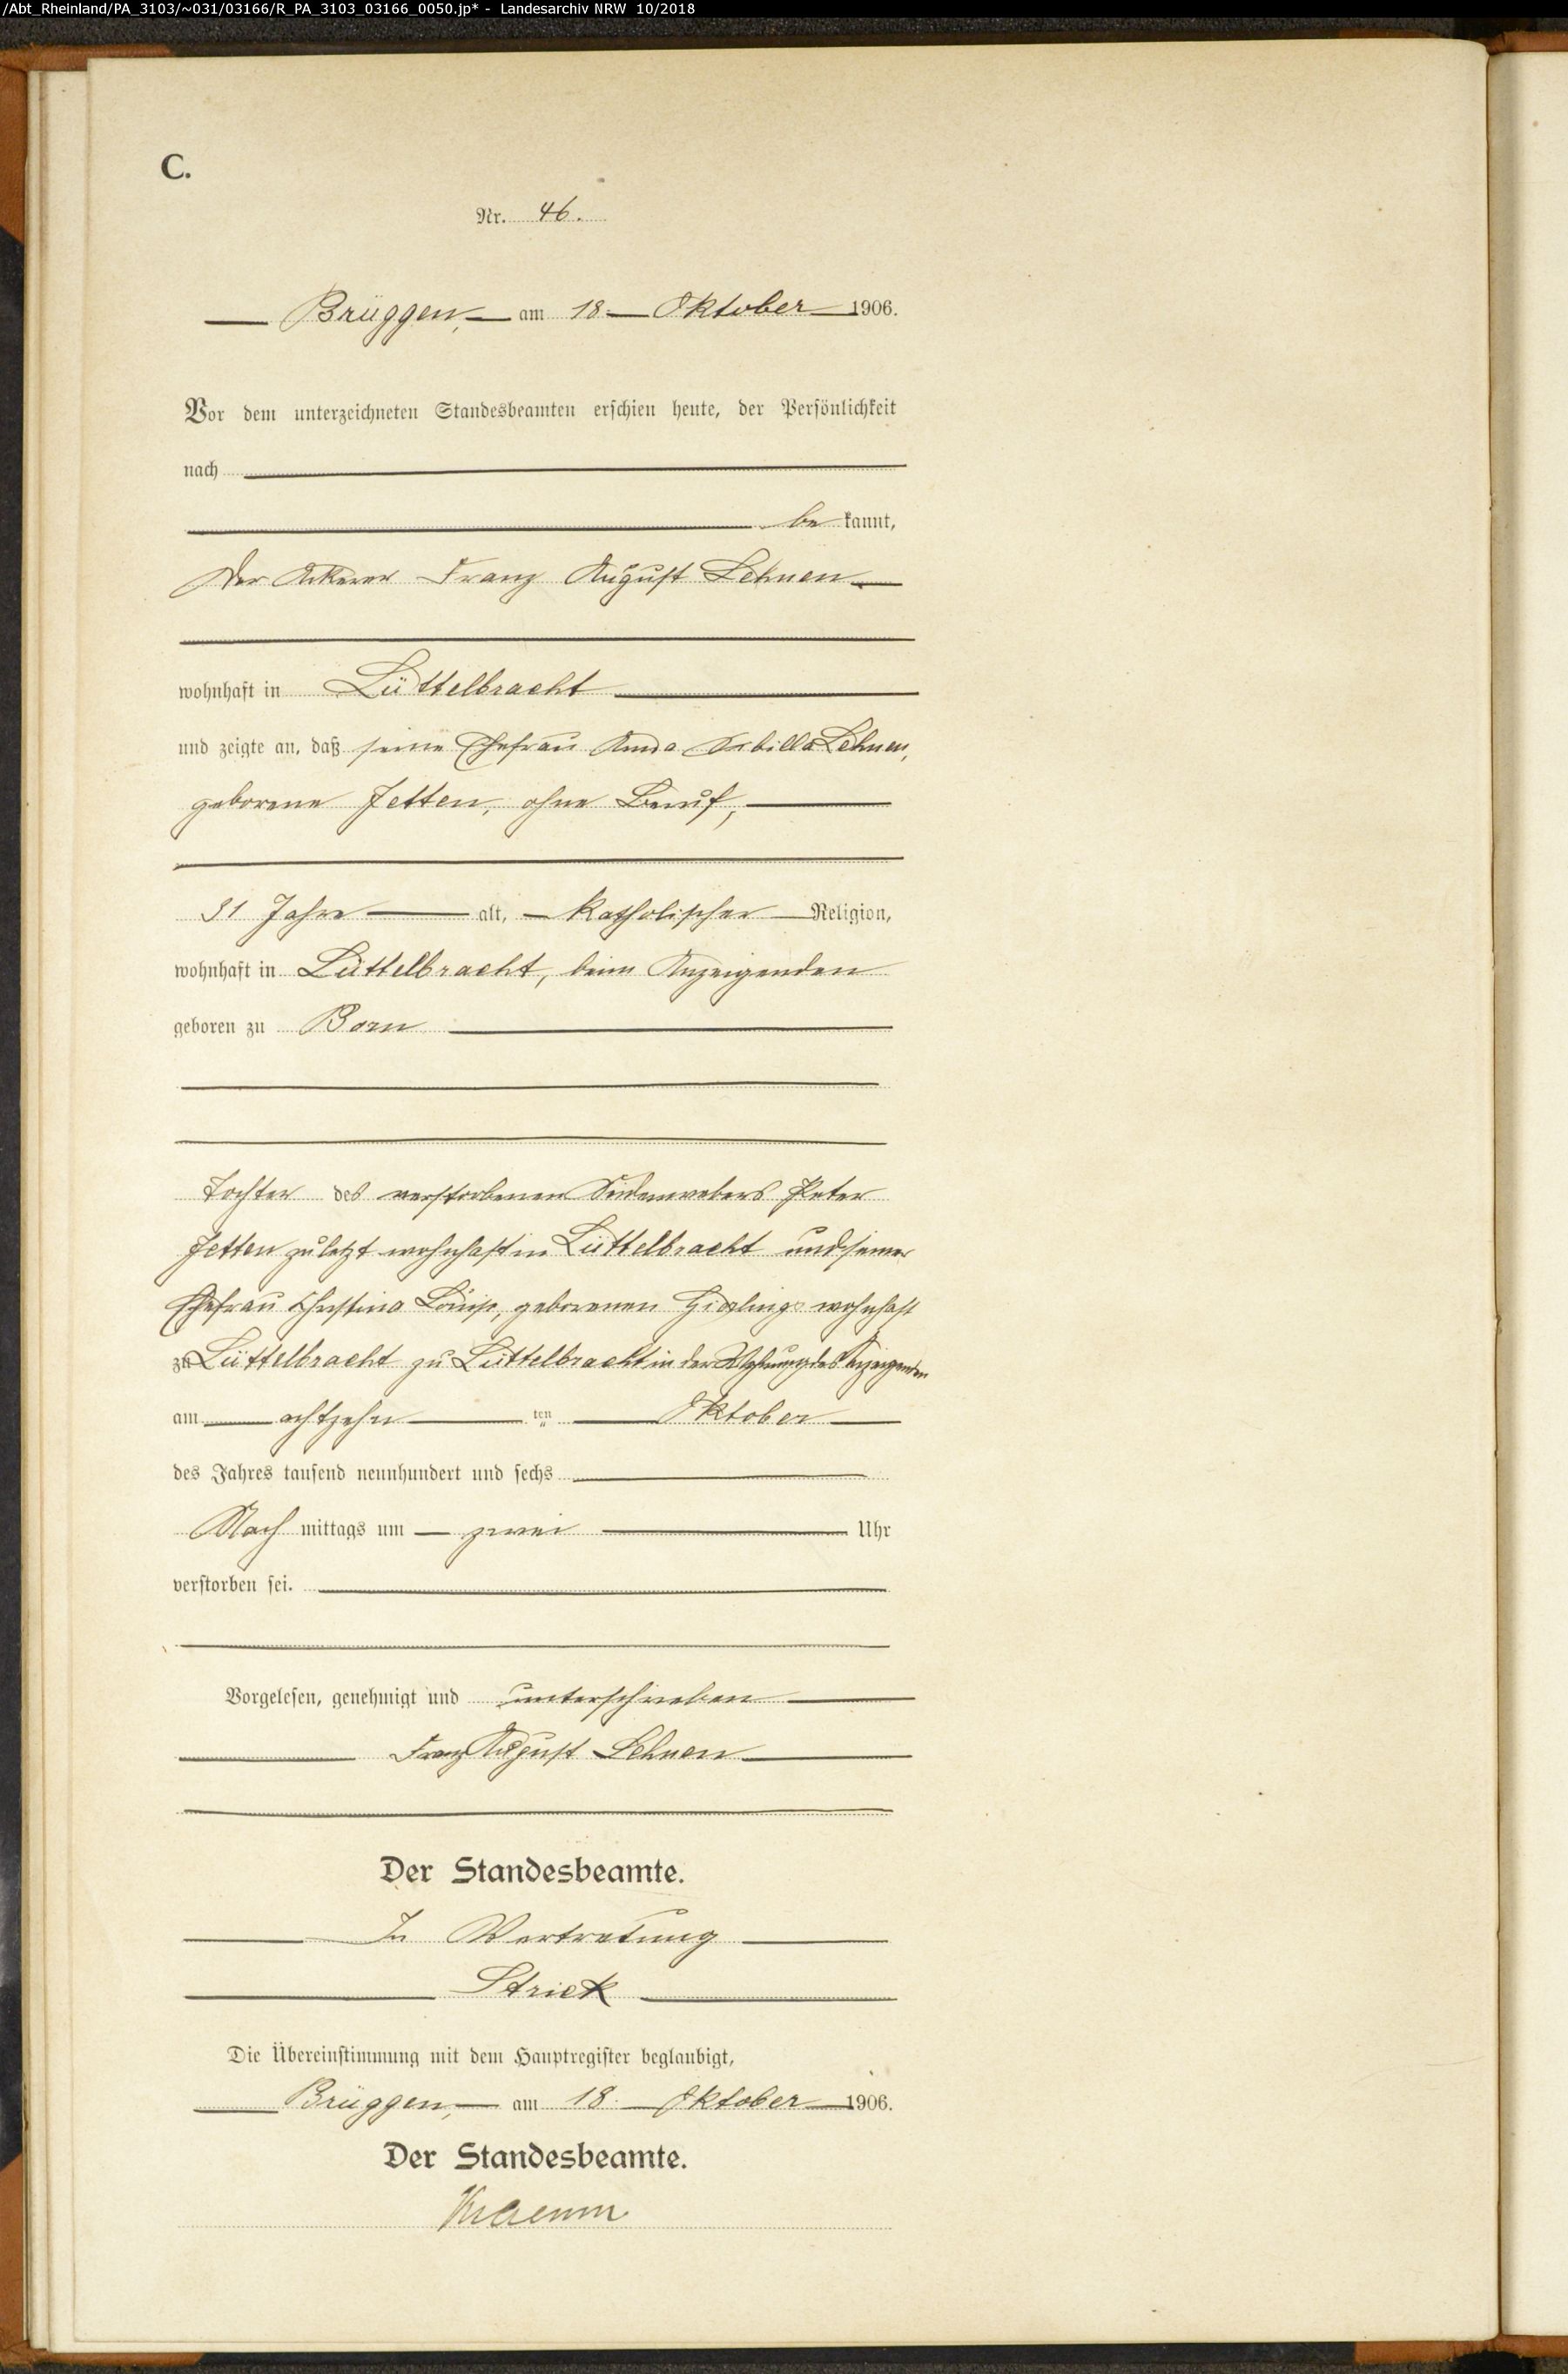 /Abt_Rheinland/PA_3103/~031/03166/R_PA_3103_03166_0050.jp* - Landesarchiv NRW 10/2018
C.
Nr. 46.
Brüggen, am 18. Oktober 1906.
Vor dem unterzeichneten Standesbeamten erschien heute, der Persönlichkeit
nach
be kannt,
der Ackerer Franz August Lehnen
wohnhaft in Lüttelbracht
und zeigte an, daß seine Ehefrau Anna Sibilla Lehnen,
geborene Jetten, ohne Beruf,
31 Jahre alt, katholischer Religion,
wohnhaft in Lüttelbracht, beim Anzeigenden
geboren zu Born
Tochter des verstorbenen Seidenwebers Peter
Jetten zuletzt wohnhaft in Lüttelbracht und seiner
Ehefrau Christina Louise, geborenen wohnhaft
zu Lüttelbracht zu Lüttelbracht in der Wohnung des Anzeigenden
am achtzehn ten Oktober
des Jahres tausend neunhundert und sechs
Nach mittags um zwei Uhr
verstorben sei.
Vorgelesen, genehmigt und unterschrieben
Franz August Lehnen
Der Standesbeamte.
In Vertretung
Strick
Die Übereinstimmung mit dem Hauptregister beglaubigt,
Brüggen, am 18. Oktober 1906.
Der Standesbeamte.